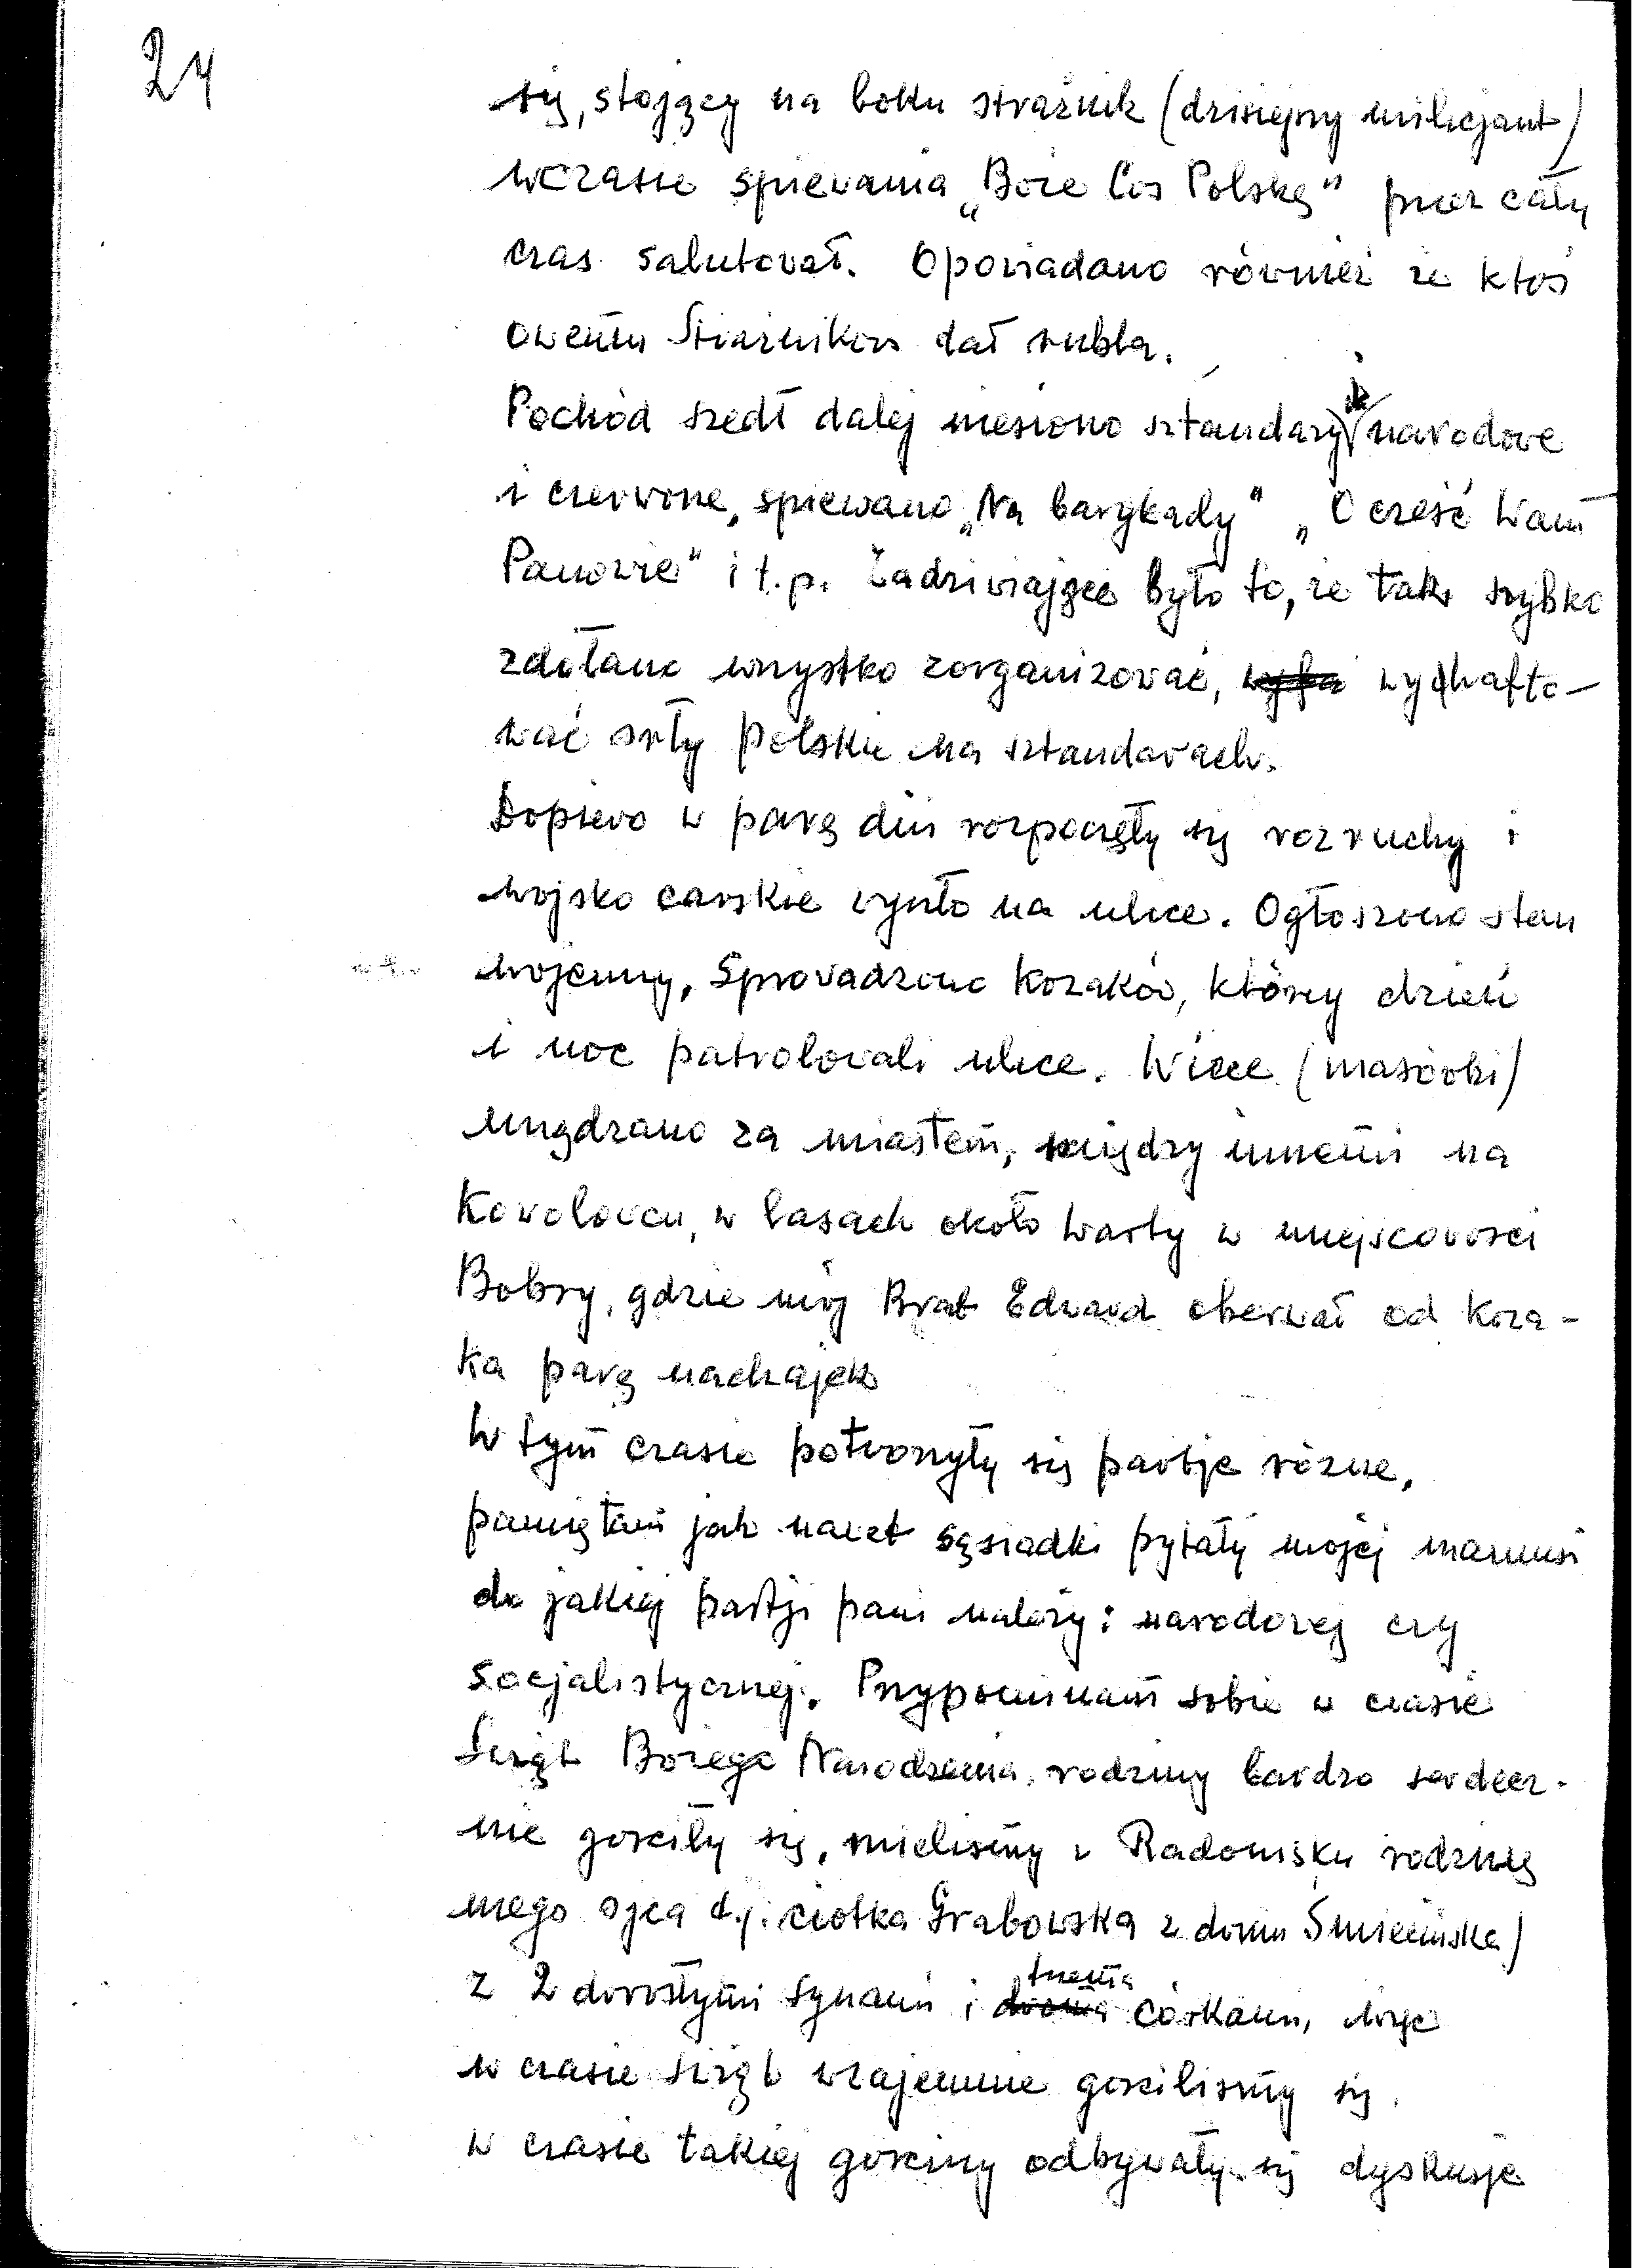 24
się, stojący na boku strażnik (dzisiejszy milicjant)
wczasie spiewania „Boże Coś Polskę" przez cały
czas salutował. Opowiadano również że ktoś
owemu Strażnikowi dał rubla.
Pochód szedł dalej niesiono sztandary narodowe
i czerwone, spiewano „Na barykady" „O cześć Wam
Panowie" i t.p. Zadziwiające było to, że tak szybko
zdołano wszystko zorganizować, wychafto-
wać orły polskie na sztandarach.
Dopiero w parę dni rozpoczęły się rozruchy i
wojsko carskie wyszło na ulice. Ogłoszono stan
wojenny, Sprowadzono Kozaków, którzy dzień
i noc patrolowali ulice. Wiece (masówki)
urządzano za miastem, między innemi na
Kowalowcu, w lasach około Warty w miejscowosci
Bobry, gdzie mój Brat Edward oberwał od Koza-
ka parę nachajek
W tym czasie potworzyły się partje różne,
pamiętam jak nawet sąsiadki pytały mojej mamusi
do jakiej partji pani należy: narodowej czy
socjalistycznej. Przypominam sobie w czasie
Swiąt Bożego Narodzenia, rodziny bardzo serdecz-
nie gosciły się, mielismy w Radomsku rodzinę
mego ojca t.j. ciotka Grabowska z domu Smiecińska)
z 2 dorosłymi synami i dwoma trzema córkami, więc
w czasie swiąt wzajemnie goscilismy się.
w czasie takiej gosciny odbywały się dyskusje